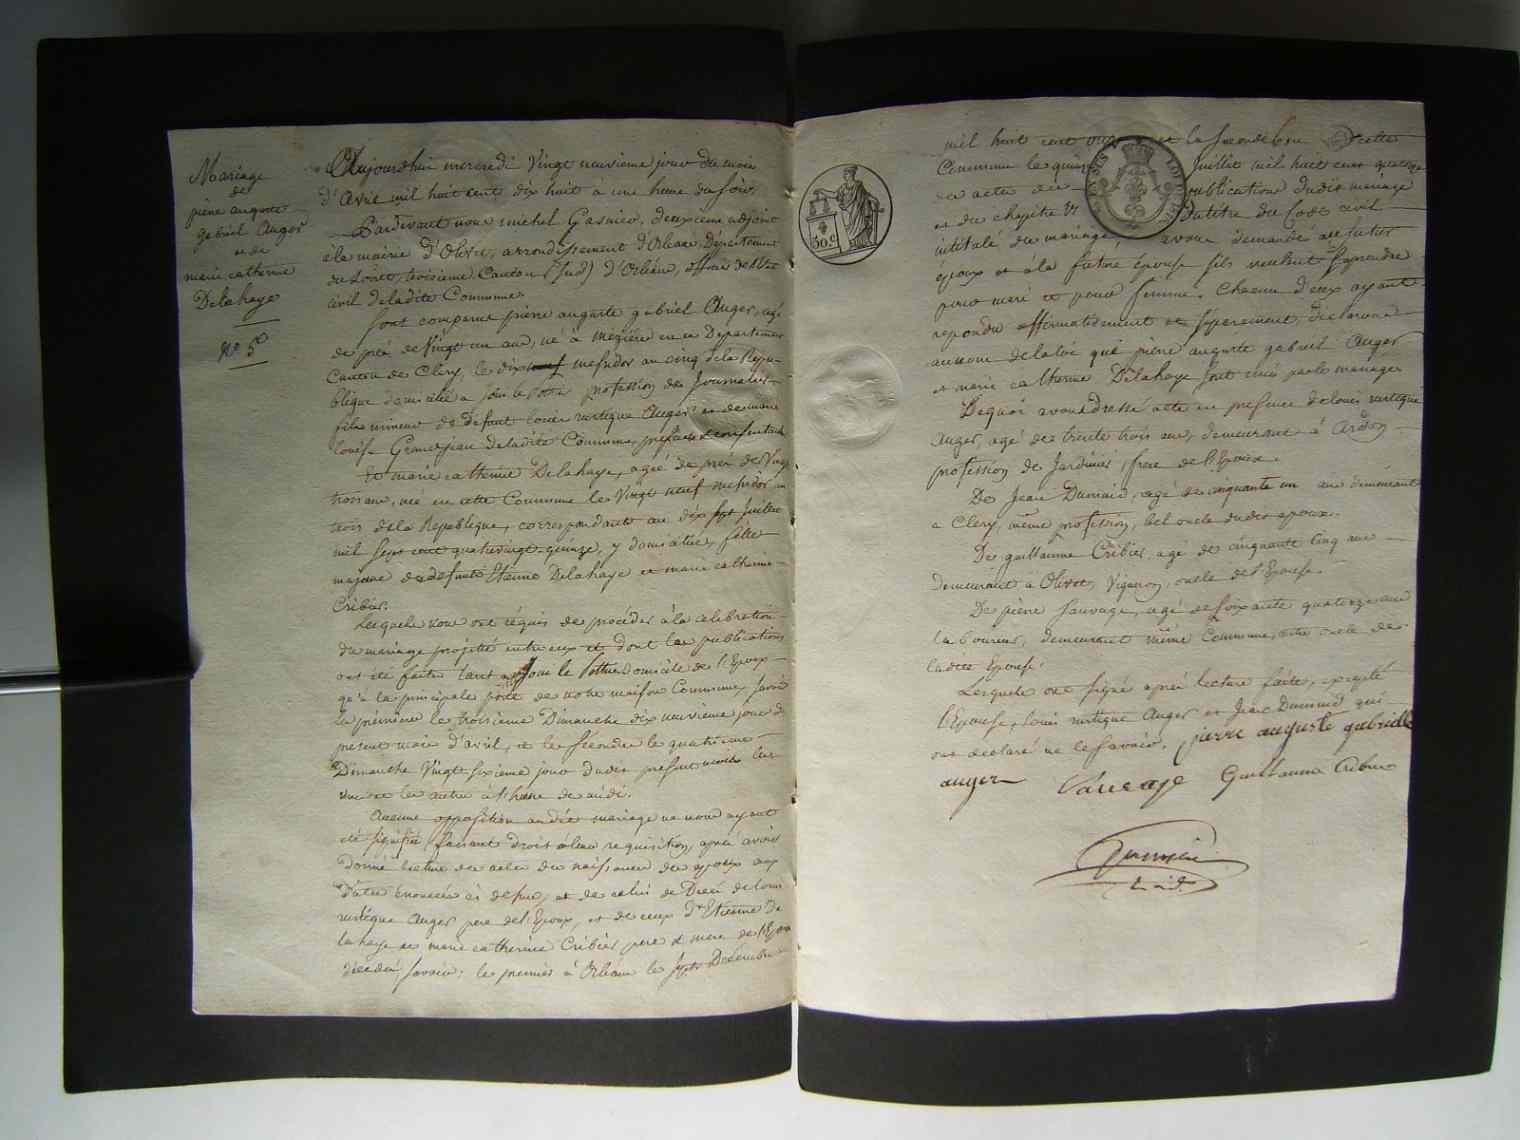 Mariage
de
pierre auguste
gabriel Auger
et de
marie catherine
Delahaye
No. 5e
Aujourdhui mercredi Vingt neuvieme jour du mois
d'Avril mil huit cent dix huit a une heure du soir,
Pardevant nous michel Gasnier, deuxieme adjoint
à la mairie d'Olivet, arrondissement d'Orleans, Département
du Loiret, troisieme Canton (sud) d'Orléans, officier de l'Etat
civil de ladite Commune.
Sont comparus pierre auguste gabriel Auger, agé
de près de Vingt un ans, né à mezière en ce Departement
Canton de Clery, le dix neuf messidor an cinq de la Repu-
blique domicilié a profession de Journalier
fils mineur de defunt louis rustique Auger et de marie
louise Grandjean de ladite Commune, présente et consentante
Et marie catherine Delahaye, agée de près de Vingt
trois ans, née en cette Commune le Vingt neuf messidor an
trois de la Republique, correspondant au dix sept juillet
mil sept cent quatrevingt-quinze, y domiciliée, fille
majeure de defunts Etienne Delahaye et marie catherine
Cribier.
Lesquels nous ont requis de procéder à la celebration
du mariage projetté entre eux et dont les publications
ont été faites tant a domicile de l'Epoux
qu'à la principale porte de notre maison Commune, savoir
la premiere le troisieme Dimanche dix neuvieme jour de
present mois d'avril, et la seconde le quatrieme
Dimanche Vingt sixieme jour dudit present mois les
unes et les autres à l'heure de midi.
Aucune opposition audit mariage ne nous ayant
été signifiée faisant droit à leur requisition, après avoir
donné lecture des actes de naissance des epoux aux
dates énoncées ci dessus, et de celui de Décès de louis
rustique Auger pere de l'Epoux, et de ceux d'Etienne De
la haye et marie catherine Cribier pere et mere de l'Epouse
décédés, savoir; le premier à Orléans le sept Decembre
mil huit cent et la seconde en cette
Commune le quinze juillet mil huit cent quatorze
des actes de publications dudit mariage
et du chapitre VI du titre du Code civil
intitulé du mariage, avons demandé au futur
époux et à la future épouse s'ils veulent se prendre
pour mari et pour femme. Chacun d'eux ayant
repondu affirmativement et séparément, declarons
au nom de la loi que pierre auguste gabriel Auger
et marie catherine Delahaye sont unis par le mariage
De quoi avons dressé acte en presence de louis rustique
Auger, agé de trente trois ans, demeurant à Ardon
profession de Jardinier, frere de l'Epoux.
De Jean Dumuid, agé de cinquante un ans demeurant
a Clery, même profession, bel oncle dudit epoux.
De guillaume Cribier, agé de cinquante cinq ans
demeurant à Olivet, Vigneron, oncle de l'Epouse.
De pierre Sauvage, agé de soixante quatorze ans
laboureur, demeurant même Commune, oncle de
ladite Epouse.
Lesquels ont signé après lecture faite, excepté
l'Epouse, louis rustique Auger et Jean Dumuid qui
ont declaré ne le savoir. pierre auguste gabrielle
auger Sauvage Guillaume Cribier
50.c